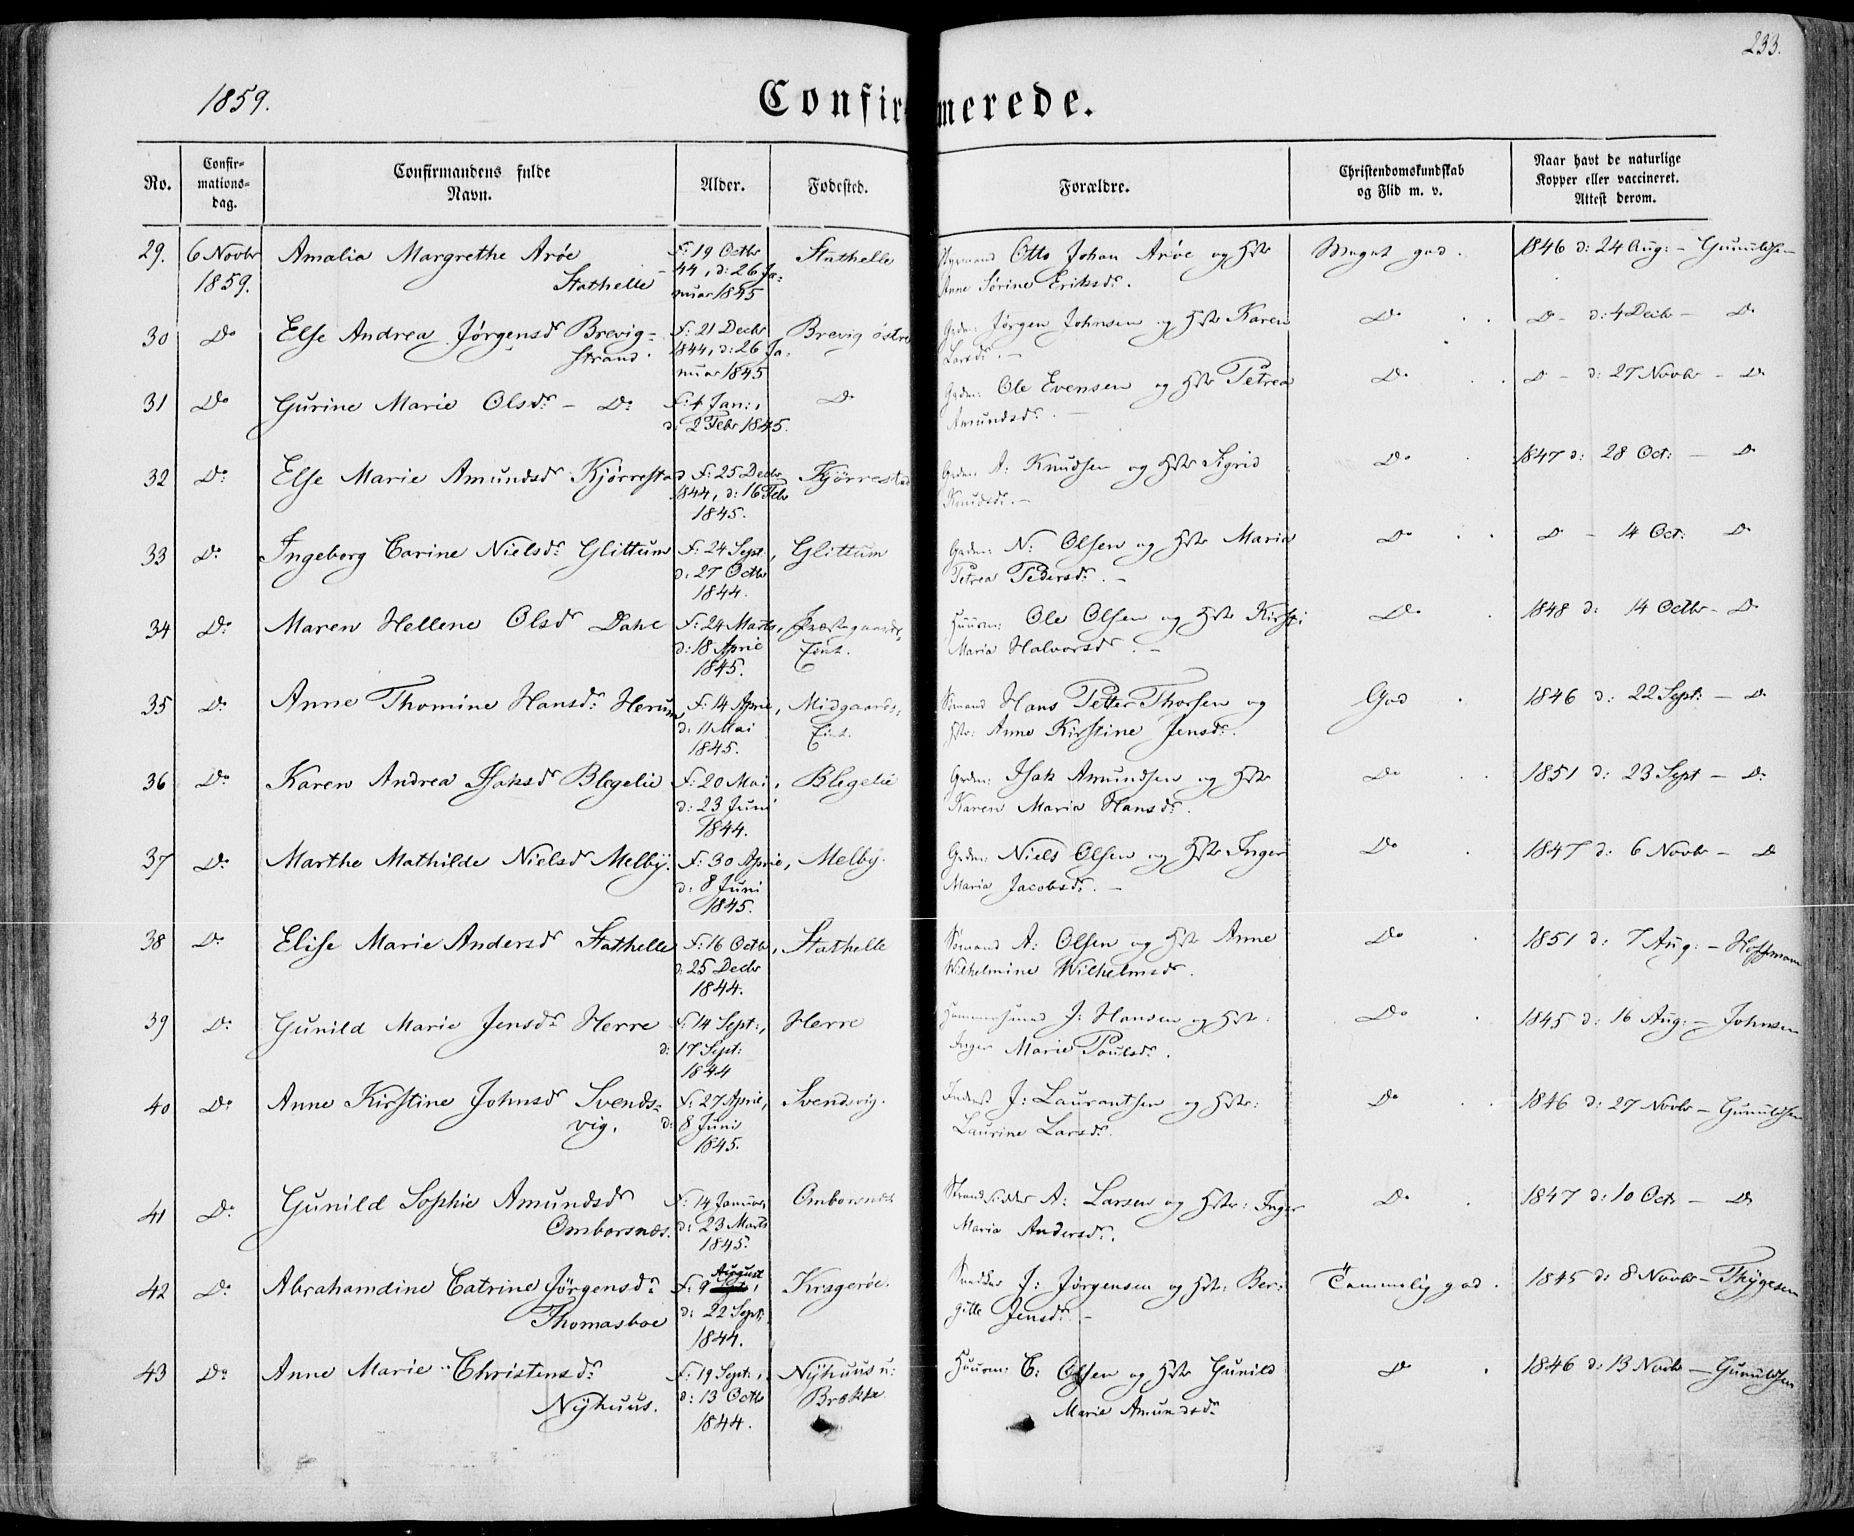 233.
1859.
Confirmerede.
No.
Confir-
mations-
dag.
Confirmandens fulde
Navn.
Alder.
Fødested.
Forældre.
Christendomskundskab
og Flid m. v.
Naar havt de naturlige
Kopper eller vaccineret.
Attest derom.
29. 6 Novbr Amalia Margrethe Arøe F: 19 Octbr Stathelle Otto Johan Arøe og Hstr Meget god. 1846 d: 24 Aug: – Gunuldsen
1859. Stathelle – 44, d: 26 Ja- Anne Sørine Eriksdr.
nuar 1845
30 Do Else Andrea Jørgensdr Brevig- F: 21 Decbr Brevig østre Grdm: Jørgen Johnsen og Hstr Karen Do Do d: 4 Decbr – Do
strand. 1844, d: 26 Ja- Larsdr. –
nuar 1845
31 Do Gurine Marie Olsdr – Do F: 4 Jan:, Do Grdm: Ole Evensen og Hstr Petrea Do Do – d: 27 Novbr – Do
d: 2 Febr 1845. Amundsdr. –
32 Do Else Marie Amundsdr Kjørrestad F: 25 Decbr Kjørrestad Grdm: A: Knudsen og Hstr Sigrid Do 1847 d: 28 Oct: – Do
1844, d: 16 Febr Knudsdr. –
1845.
33 Do Ingeborg Carine Nielsdr Glittum F: 24 Sept, Glittum Grdm: N: Olsen og Hstr Maria Do Do – 14 Oct: Do
d: 27 Octbr Petrea Pedersdr. –
1844.
34 Do Maren Hellene Olsdr Dahl F: 24 Marts, Præstegaards- Huusm: Ole Olsen og Hstr Kirsti Do 1848 d: 14 Octbr – Do
d: 18 April Eint. Maria Halvorsdr. –
1845.
35 Do Anne Thomine Hansdr Herum F: 14 April, Midgaards- Sømand Hans Petter Thorsen og God 1846 d: 22 Sept: – Do
d: 11 Mai Eint. Hstr: Anne Kirstine Jensdr.
1845.
36 Do Karen Andrea Isaksdr Blegelie F: 20 Mai, Blegelie Grdm: Isak Amundsen og Hstr Do 1851 d: 23 Sept – Do
d: 23 Juni Karen Maria Hansdr.
1844.
37 Do Marthe Mathilde Nielsdr Melby. F: 30 April, Melby. Grdm: Niels Olsen og Hstr Inger Do 1847 d: 6 Novbr – Do
d: 8 Juni Maria Jacobsdr. –
1845.
38 Do Elise Marie Andersdr Stathelle F: 16 Octbr, Stathelle Sømand A: Olsen og Hstr Anne Do 1851 d: 7 Aug: – Hoffmann
d: 25 Decbr Wilhelmine Wilhelmsdr.
1844.
39 Do Gunild Marie Jensdr Herre F: 14 Sept:, Herre J: Hansen og Hstr: Do 1845 d: 16 Aug: – Johnsen
d: 17 Sept: Inger Marie Poulsdr.
1844
40 Do Anne Kirstine Johnsdr Svends- F: 27 April, Svendsvig. Inderst J: Laurantsen og Hstr: Do 1846 d: 27 Novbr – Gunuldsen
vig. d: 8 Juni Laurine Larsdr.
1845.
41 Do Gunild Sophie Amundsdr F: 14 Januar, Omborsnæs Strandsidder A: Larsen og Hstr: Inger Do 1847 d: 10 Octr – Do
Omborsnæs. d: 23 Marts Maria Andersdr.
1845.
August
42 Do Abrahamdine Catrine Jörgensdr F: 9, Kragerøe. Snedker J: Jørgensen og Hstr: Ber- Temmelig god. 1845 d: 8 Novbr – Thygesen
Thomasboe d: 22 Sept: gitte Jensdr. –
1844.
43 Do Anne Marie Christensdr F: 19 Sept:, Nyhuus u: Huusm: C: Olsen og Hstr Gunild Do 1846 d: 13 Novbr – Gunuldsen
Nyhuus. d: 13 Octbr Brække Marie Amundsdr
1844.